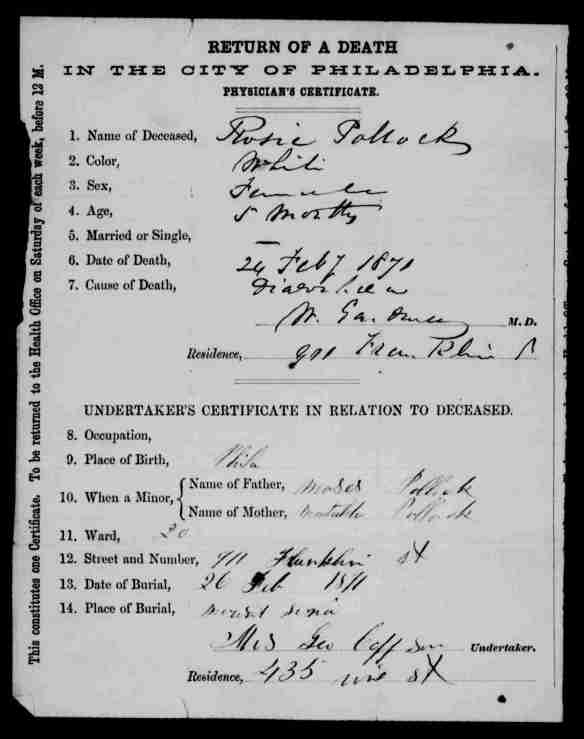 RETURN OF A DEATH
IN THE CITY OF PHILADELPHIA.
PHYSICIAN'S CERTIFICATE.
1. Name of Deceased, Rosie Pollock
2. Color, White
3. Sex, Female
4. Age, 5 Months
5. Married or Single, —
6. Date of Death, 24 Feby 1871
7. Cause of Death, Diarrhoea
W. M.D.
Residence, 911 Franklin S
UNDERTAKER'S CERTIFICATE IN RELATION TO DECEASED.
8. Occupation,
9. Place of Birth, Phila
10. When a Minor, { Name of Father, Moses Pollock
Name of Mother, Pollock
11. Ward, 20
12. Street and Number, 911 Franklin st
13. Date of Burial, 26 Feb 1871
14. Place of Burial, mount Sinai
Mrs Geo Undertaker.
Residence, 435 st
This constitutes one Certificate. To be returned to the Health Office on Saturday of each week, before 12 M.